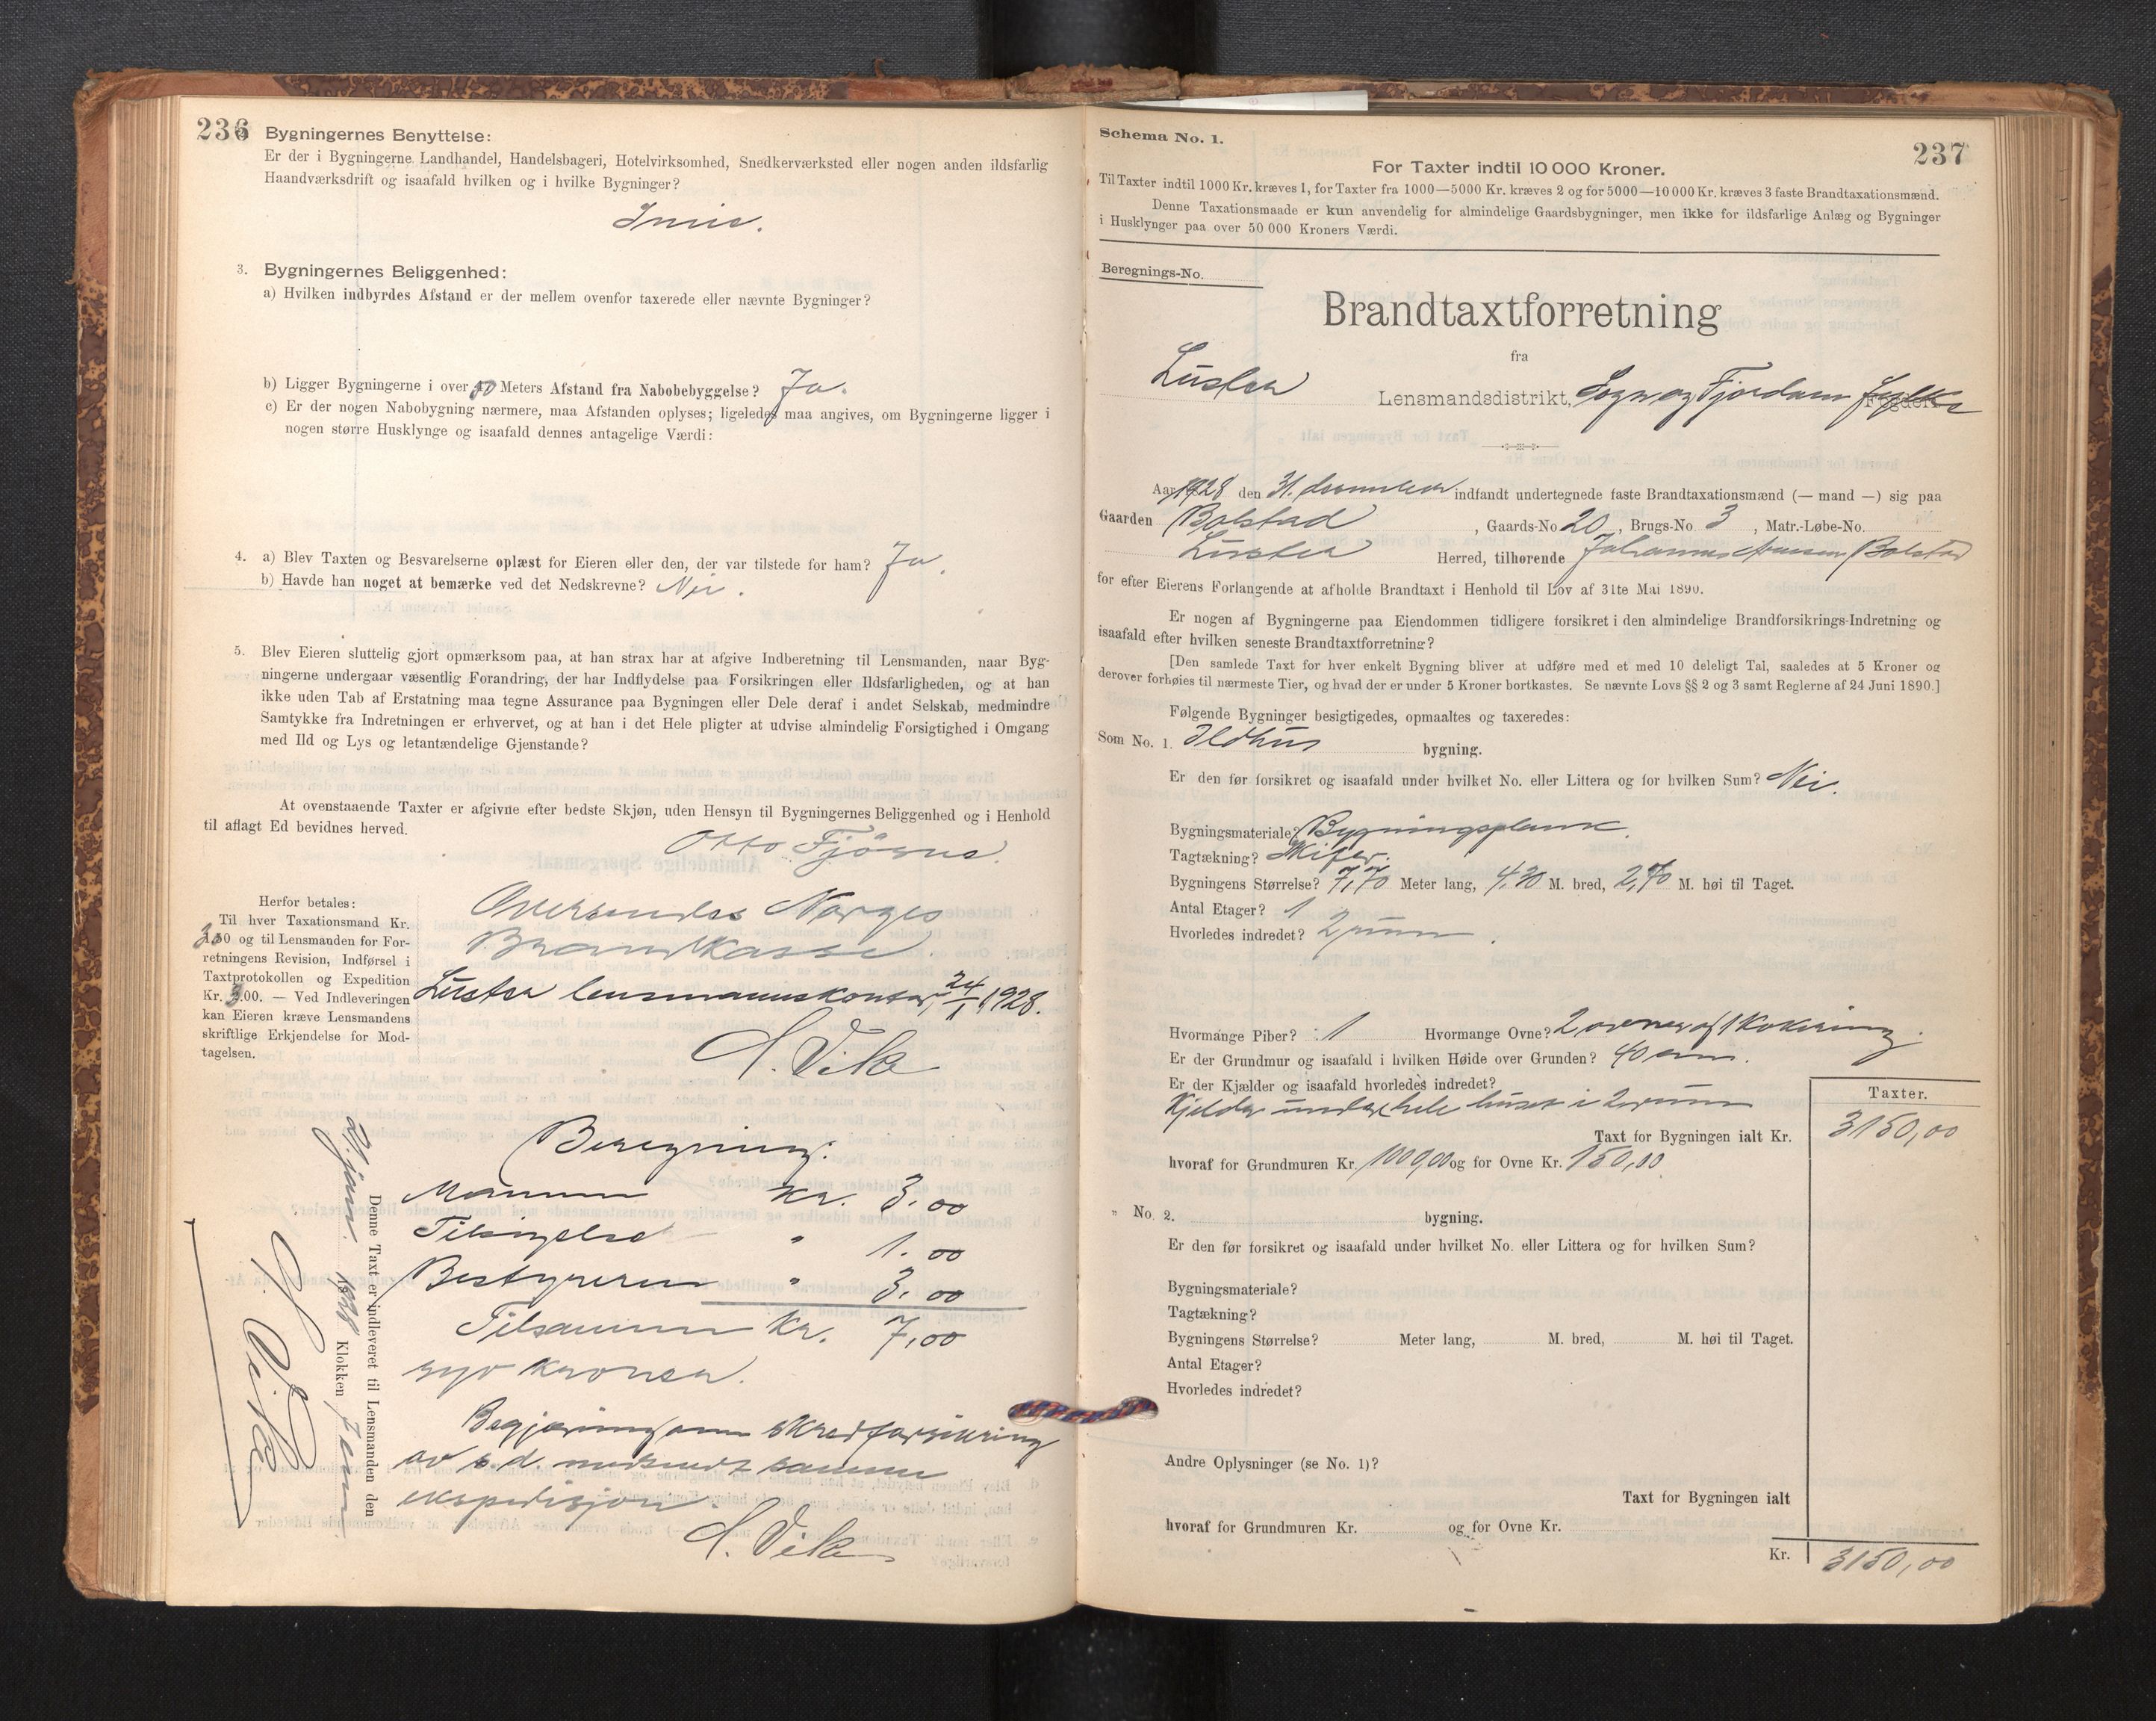 236
2. Bygningernes Benyttelse:
Er der i Bygningerne Landhandel, Handelsbageri, Hotelvirksomhed, Snedkerværksted eller nogen anden ildsfarlig
Haandværksdrift og isaafald hvilken og i hvilke Bygninger?
3. Bygningernes Beliggenhed:
a) Hvilken indbyrdes Afstand er der mellem ovenfor taxerede eller nævnte Bygninger?
b) Ligger Bygningerne i over Meters Afstand fra Nabobebyggelse? Ja.
c) Er der nogen Nabobygning nærmere, maa Afstanden oplyses; ligeledes maa angives, om Bygningerne ligger i
nogen større Husklynge og isaafald dennes antagelige Værdi:
4. a) Blev Taxten og Besvarelserne oplæst for Eieren eller den, der var tilstede for ham? Ja.
b) Havde han noget at bemærke ved det Nedskrevne? Nei.
5. Blev Eieren sluttelig gjort opmærksom paa, at han strax har at afgive Indberetning til Lensmanden, naar Byg-
ningerne undergaar væsentlig Forandring, der har Indflydelse paa Forsikringen eller Ildsfarligheden, og at han
ikke uden Tab af Erstatning maa tegne Assurance paa Bygningen eller Dele deraf i andet Selskab, medmindre
Samtykke fra Indretningen er erhvervet, og at han i det Hele pligter at udvise almindelig Forsigtighed i Omgang
med Ild og Lys og letantændelige Gjenstande?
At ovenstaaende Taxter er afgivne efter bedste Skjøn, uden Hensyn til Bygningernes Beliggenhed og i Henhold
til aflagt Ed bevidnes herved.
Otto Fjösne.
Herfor betales:
Til hver Taxationsmand Kr.
3.00 og til Lensmanden for For-
retningens Revision, Indførsel i
Taxtprotokollen og Expedition
Kr. 3.00. — Ved Indleveringen
kan Eieren kræve Lensmandens
skriftlige Erkjendelse for Mod-
tagelsen.
Oversendes Norges
Brandkasse.
Luster lensmannskontor, 24/1 1928.
H. Vike
Beregning:
Mannen Kr. 3.00
Tilsigelse " 1.00
Bestyreren " 3.00
Tilsammen Kr. 7,00
syv kroner.
Begjæring om skredforsikring
av s. d. medsendt samme
ekspedisjon.
H. Vike
Denne Taxt er indleveret til Lensmanden den
2. jan. 1928 Klokken 7 em
H. Vike
Schema No. 1.
237
For Taxter indtil 10 000 Kroner.
Til Taxter indtil 1000 Kr. kræves 1, for Taxter fra 1000—5000 Kr. kræves 2 og for 5000—10 000 Kr. kræves 3 faste Brandtaxationsmænd.
Denne Taxationsmaade er kun anvendelig for almindelige Gaardsbygninger, men ikke for ildsfarlige Anlæg og Bygninger
i Husklynger paa over 50 000 Kroners Værdi.
Beregnings-No.
Brandtaxtforretning
fra
Luster Lensmandsdistrikt, Sogn og Fjordane fylke Fogderi
Aar 1928 den 31. desember indfandt undertegnede faste Brandtaxationsmænd (— mand —) sig paa
Gaarden Bolstad, Gaards-No 20, Brugs-No 3, Matr.-Løbe-No.
Luster Herred, tilhørende Johannes Bolstad
for efter Eierens Forlangende at afholde Brandtaxt i Henhold til Lov af 31te Mai 1890.
Er nogen af Bygningerne paa Eiendommen tidligere forsikret i den almindelige Brandforsikrings-Indretning og
isaafald efter hvilken seneste Brandtaxtforretning?
[Den samlede Taxt for hver enkelt Bygning bliver at udføre med et med 10 deleligt Tal, saaledes at 5 Kroner og
derover forhøies til nærmeste Tier, og hvad der er under 5 Kroner bortkastes. Se nævnte Lovs §§ 2 og 3 samt Reglerne af 24 Juni 1890.]
Følgende Bygninger besigtigedes, opmaaltes og taxeredes:
Som No. 1. Ildhus bygning.
Er den før forsikret og isaafald under hvilket No. eller Littera og for hvilken Sum? Nei.
Bygningsmateriale? Bygningsplank.
Tagtækning? Skifer.
Bygningens Størrelse? 7,70 Meter lang, 4,30 M. bred, 2,70 M. høi til Taget.
Antal Etager? 1
Hvorledes indredet? 2 rum.
Hvormange Piber? 1 Hvormange Ovne? 2 ovner og 1 kokering.
Er der Grundmur og isaafald i hvilken Høide over Grunden? 40 cm.
Er der Kjælder og isaafald hvorledes indredet?
Kjelder under hele huset i 2 rum
Taxter.
Taxt for Bygningen ialt Kr. 3150,00
hvoraf for Grundmuren Kr. 1000,00 og for Ovne Kr. 150,00
" No. 2. bygning.
Er den før forsikret og isaafald under hvilket No. eller Littera og for hvilken Sum?
Bygningsmateriale?
Tagtækning?
Bygningens Størrelse? Meter lang, M. bred, M. høi til Taget.
Antal Etager?
Hvorledes indredet?
Andre Oplysninger (se No. 1)?
Taxt for Bygningen ialt
hvoraf for Grundmuren Kr. og for Ovne Kr.
Kr. 3150,00